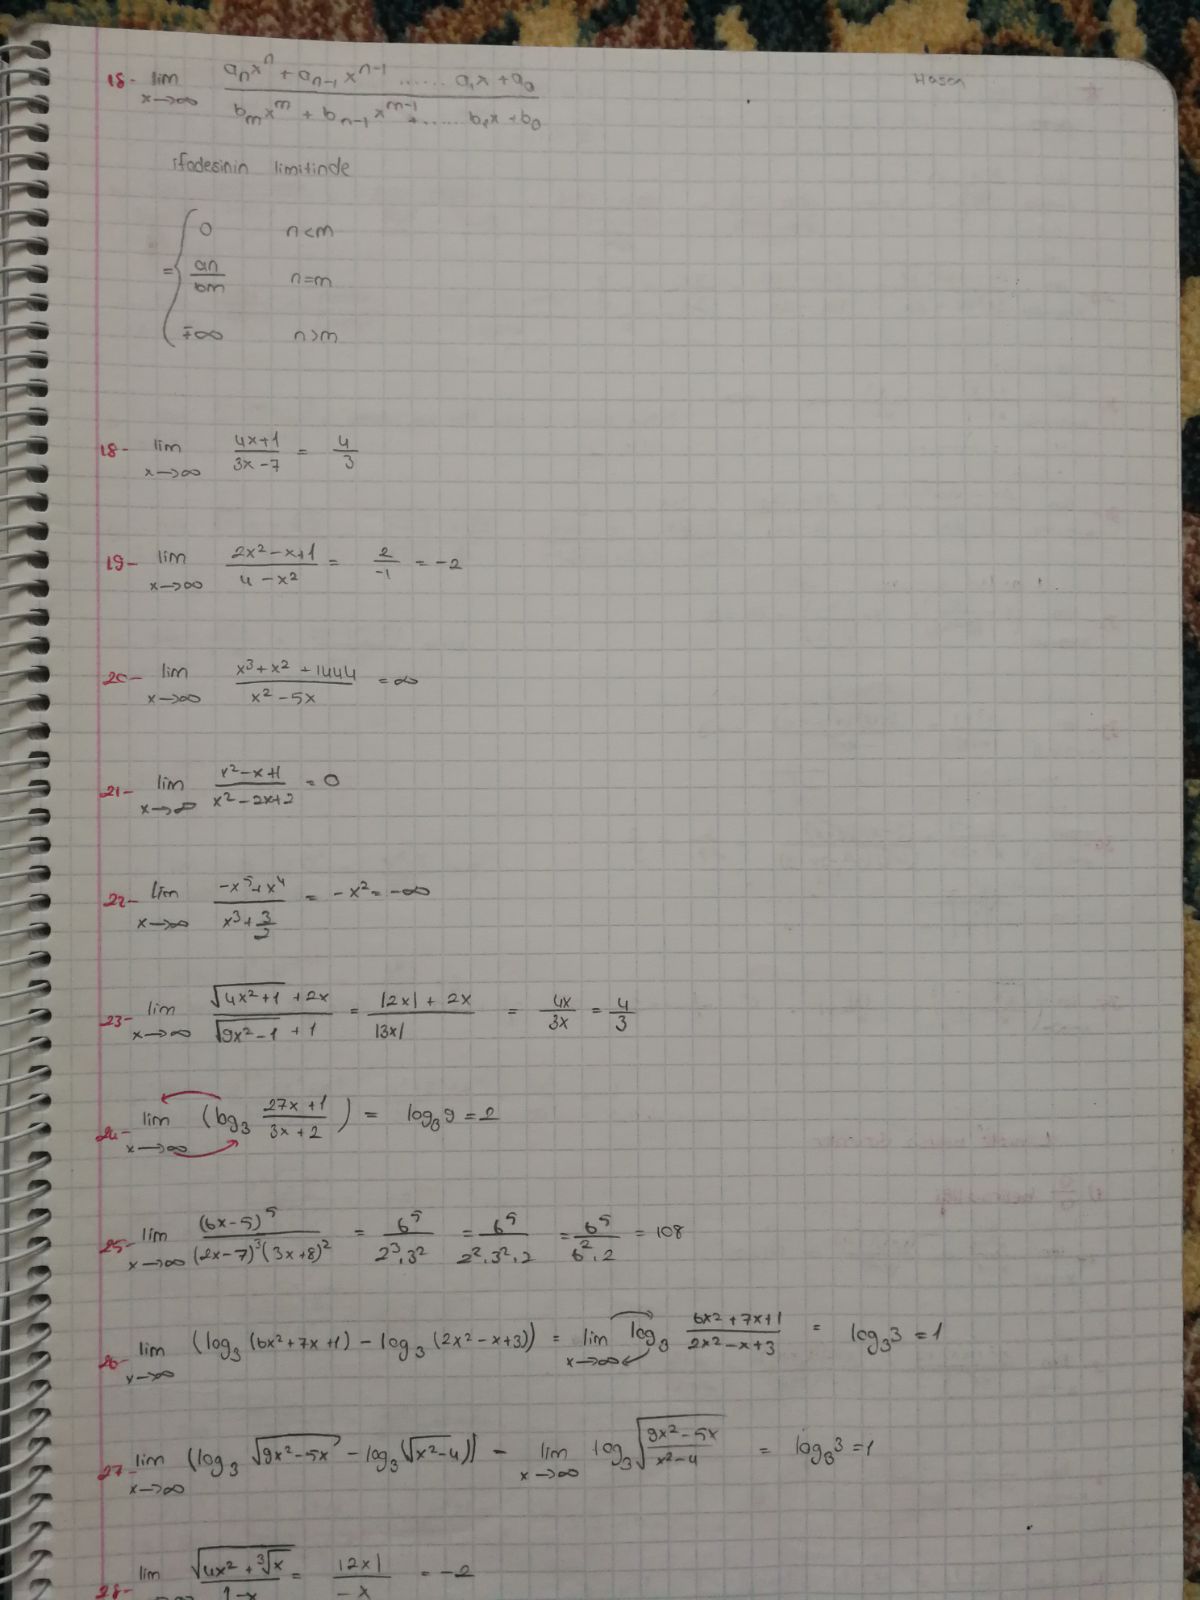 Hasan
18- lim x→∞ (aₙxⁿ + aₙ₋₁xⁿ⁻¹ ...... a₁x + a₀) / (bₘxᵐ + bₙ₋₁xᵐ⁻¹ + ..... b₁x + b₀)
ifadesinin limitinde
= { 0 n<m
an/bm n=m
∓∞ n>m
18- lim x→∞ (4x+1)/(3x-7) = 4/3
19- lim x→∞ (2x²-x+1)/(4-x²) = 2/-1 = -2
20- lim x→∞ (x³+x²+1444)/(x²-5x) = ∞
21- lim x→∞ (x²-x+1)/(x²-2x+2) = 0
22- lim x→∞ (-x⁵+x⁴)/(x³+3/2) = -x² = -∞
23- lim x→∞ (√(4x²+1) + 2x)/(√(9x²-1) + 1) = (|2x| + 2x)/|3x| = 4x/3x = 4/3
24- lim x→∞ (log₃ (27x+1)/(3x+2)) = log₃9 = 2
25- lim x→∞ (6x-5)⁵/((2x-7)³(3x+8)²) = 6⁵/(2³.3²) = 6⁵/(2².3².2) = 6⁵/(6².2) = 108
26- lim x→∞ (log₃(6x²+7x+1) - log₃(2x²-x+3)) = lim x→∞ log₃ (6x²+7x+1)/(2x²-x+3) = log₃3 = 1
27- lim x→∞ (log₃ √(9x²-5x) - log₃(√(x²-4))) - lim x→∞ log₃ √((9x²-5x)/(x²-4)) = log₃3 = 1
28- lim √(4x²+³√x)/(1-x) = |2x|/-x = -2